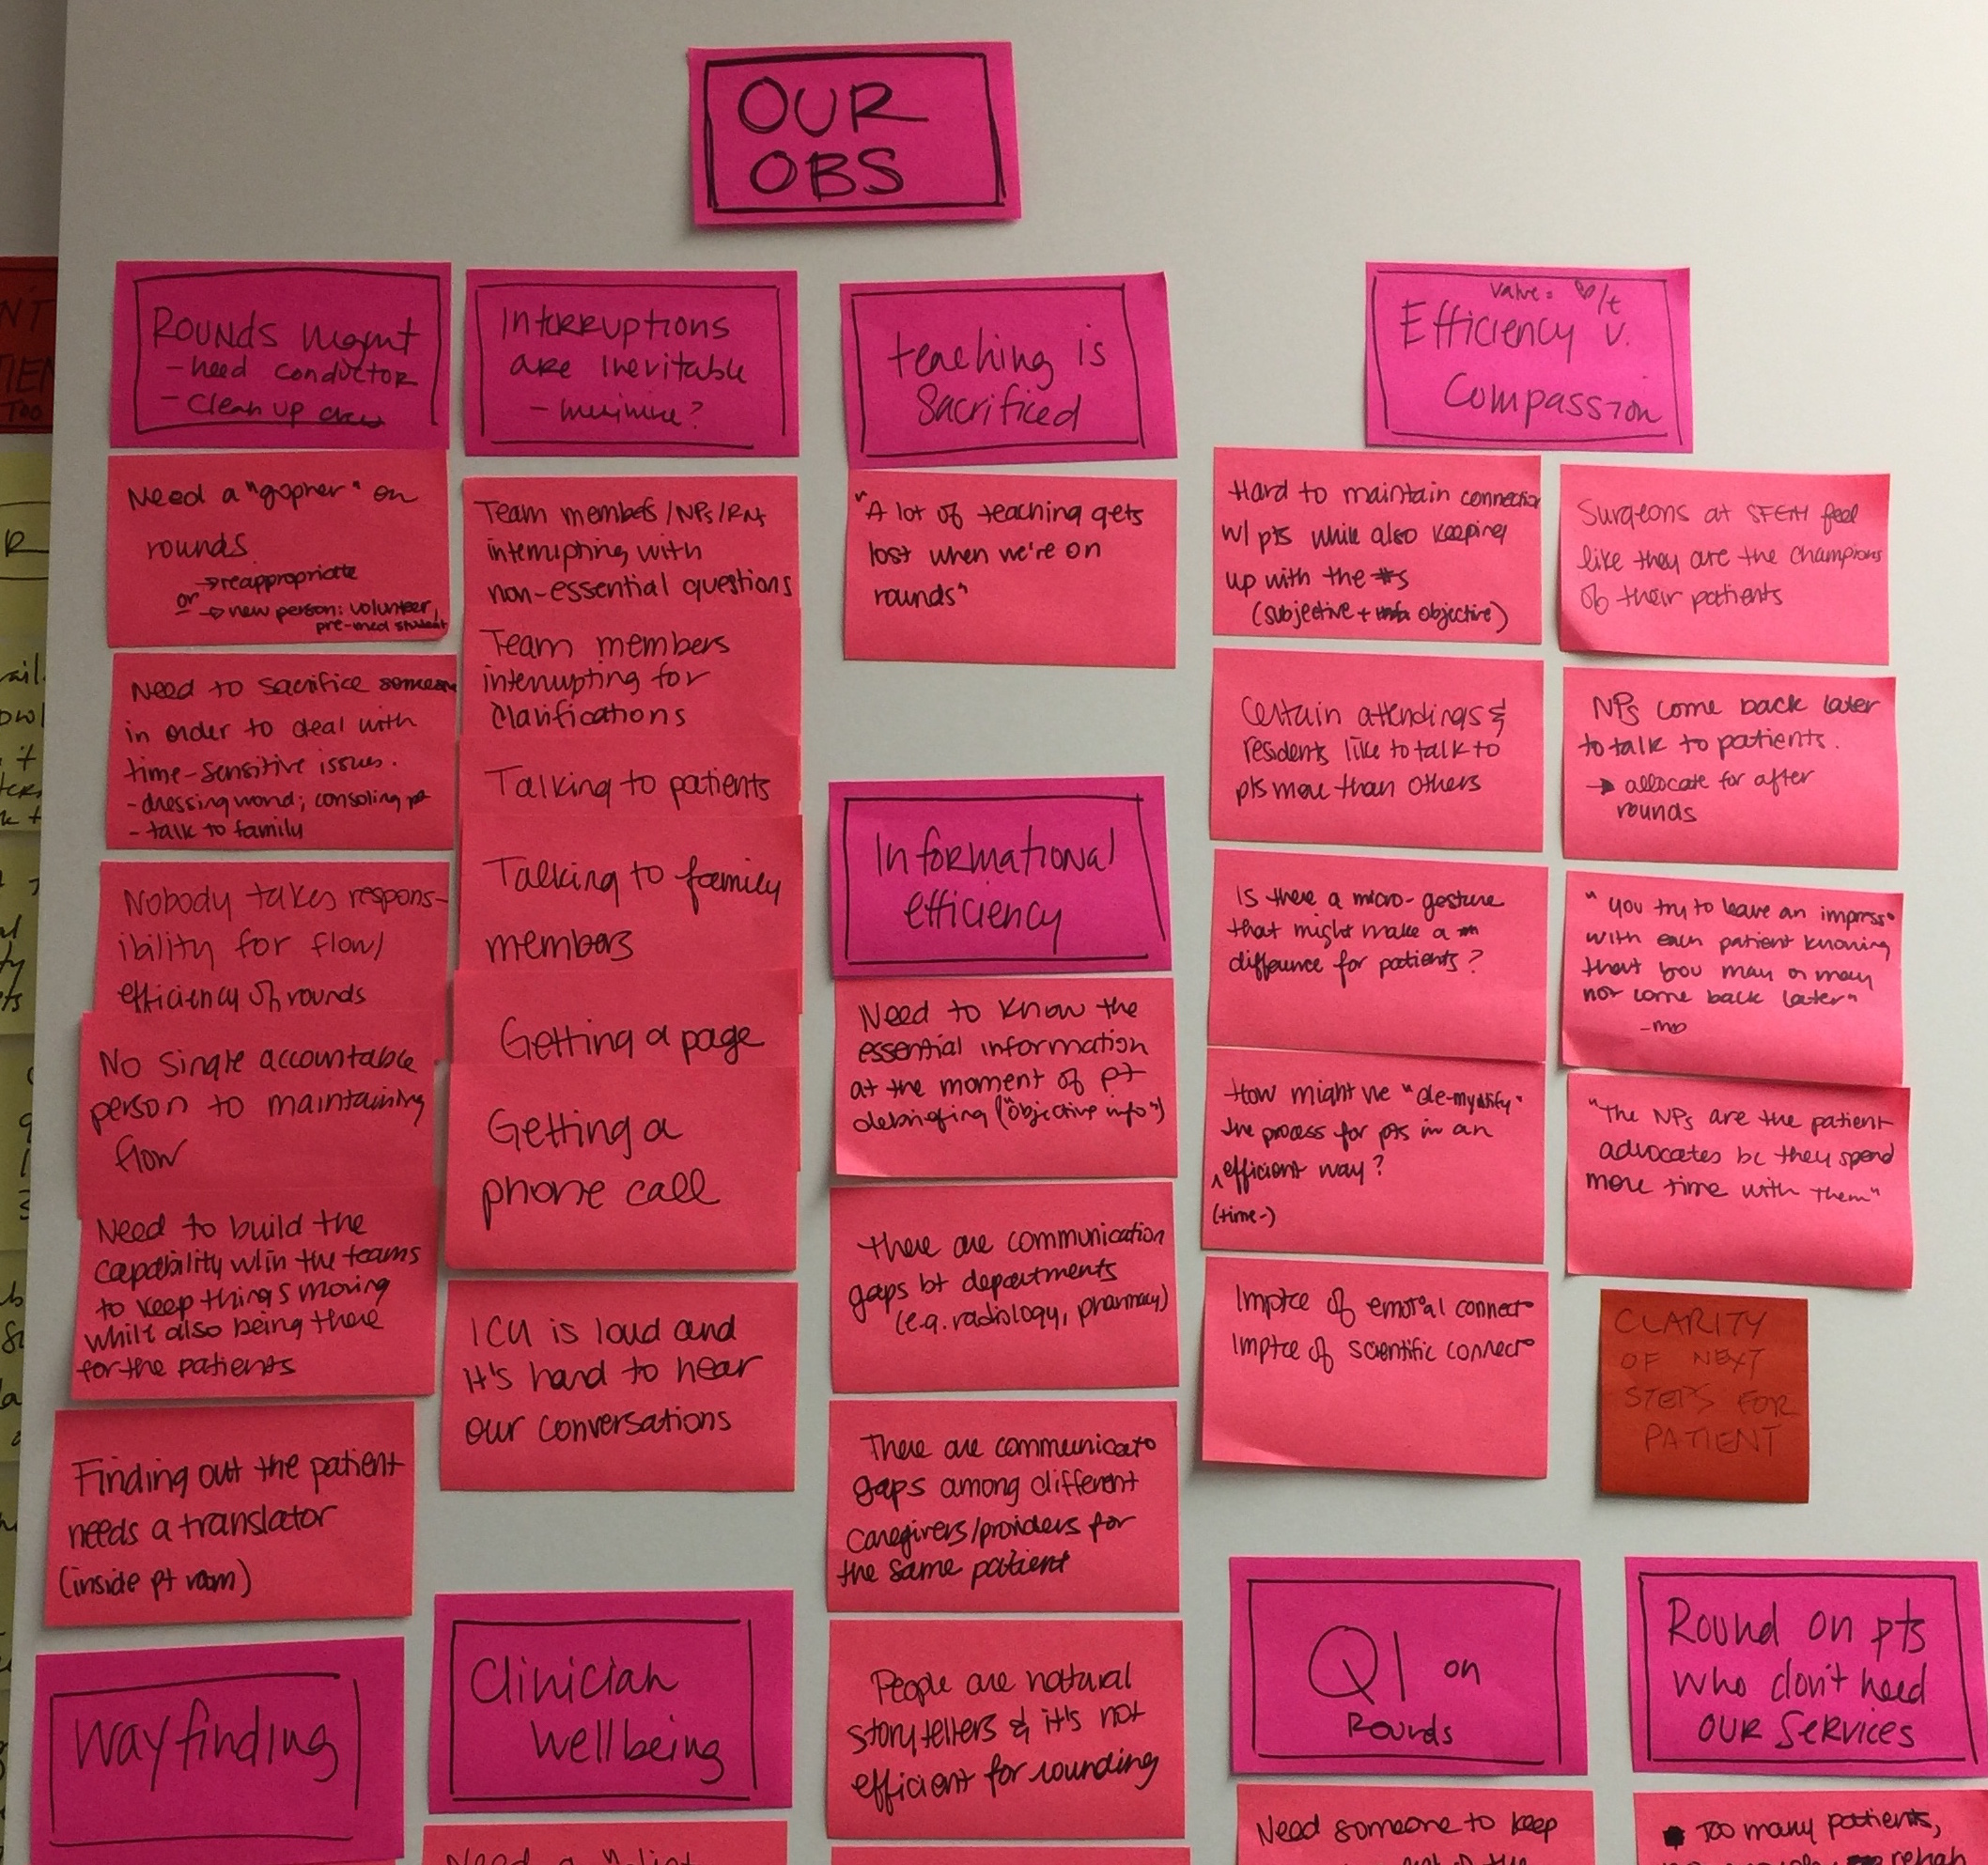 OUR
OBS
ROUNDS Mgmt
- need conductor
- Clean up crew
Need a "gopher" on
rounds
→ reappropriate
or → new person: volunteer,
pre-med student
Need to sacrifice someone
in order to deal with
time-sensitive issues.
- dressing wound; consoling pt
- talk to family
Nobody takes respons-
ibility for flow/
efficiency of rounds
No single accountable
person to maintaining
flow
Need to build the
capability w/in the teams
to keep things moving
while also being there
for the patients
Finding out the patient
needs a translator
(inside pt room)
Wayfinding
Interruptions
are inevitable
- minimize?
Team members/NPs/RNs
interrupting with
non-essential questions
Team members
interrupting for
clarifications
Talking to patients
Talking to family
members
Getting a page
Getting a
phone call
ICU is loud and
it's hard to hear
our conversations
Clinician
Wellbeing
Need a
teaching is
Sacrificed
"A lot of teaching gets
lost when we're on
rounds"
Informational
efficiency
Need to know the
essential information
at the moment of pt
debriefing ("objective info")
There are communication
gaps bt departments
(e.g. radiology, pharmacy)
There are communicato
gaps among different
caregivers/providers for
the same patient
People are natural
storytellers & it's not
efficient for rounding
value = ♡/t
Efficiency v.
Compassion
Hard to maintain connection
w/ pts while also keeping
up with the #s
(subjective + objective)
Certain attendings &
residents like to talk to
pts more than others
Is there a micro-gesture
that might make a
difference for patients?
How might we "de-mystify"
the process for pts in an
efficient way?
(time-)
Imptce of emot'al connect°
Imptce of scientific connect°
Surgeons at SFGH feel
like they are the champions
of their patients
NPs come back later
to talk to patients.
→ allocate for after
rounds
"you try to leave an impress°
with each patient knowing
that you may or may
not come back later"
-MD
"The NPs are the patient
advocates bc they spend
more time with them"
CLARITY
OF NEXT
STEPS FOR
PATIENT
QI on
Rounds
Need someone to keep
Round on pts
who don't need
our services
Too many patients,
rehab